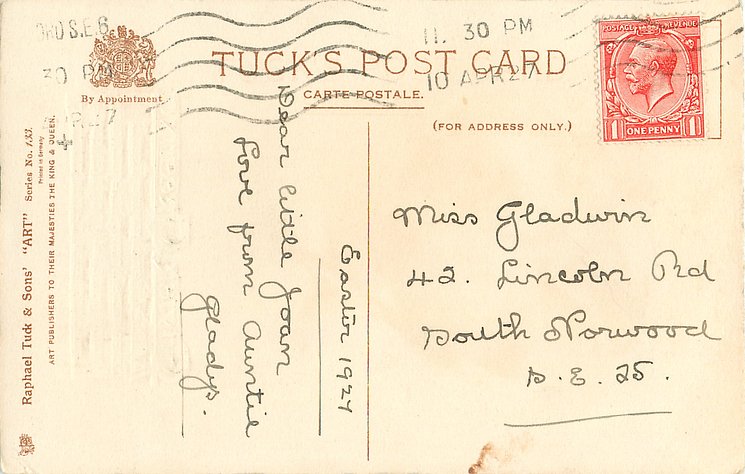 TUCK'S POST CARD
CARTE POSTALE.
(FOR ADDRESS ONLY.)
By Appointment
11. 30 PM
10 APR 27
S.E.6
30 PM
POSTAGE REVENUE
ONE PENNY
1
1
Raphael Tuck & Sons' "ART" Series No.
Printed in Germany
ART PUBLISHERS TO THEIR MAJESTIES THE KING & QUEEN.
Dear little Joan
Love from Auntie
Gladys.
Easter 1927
Miss Gladwin
42. Lincoln Rd
South Norwood
S. E. 25.